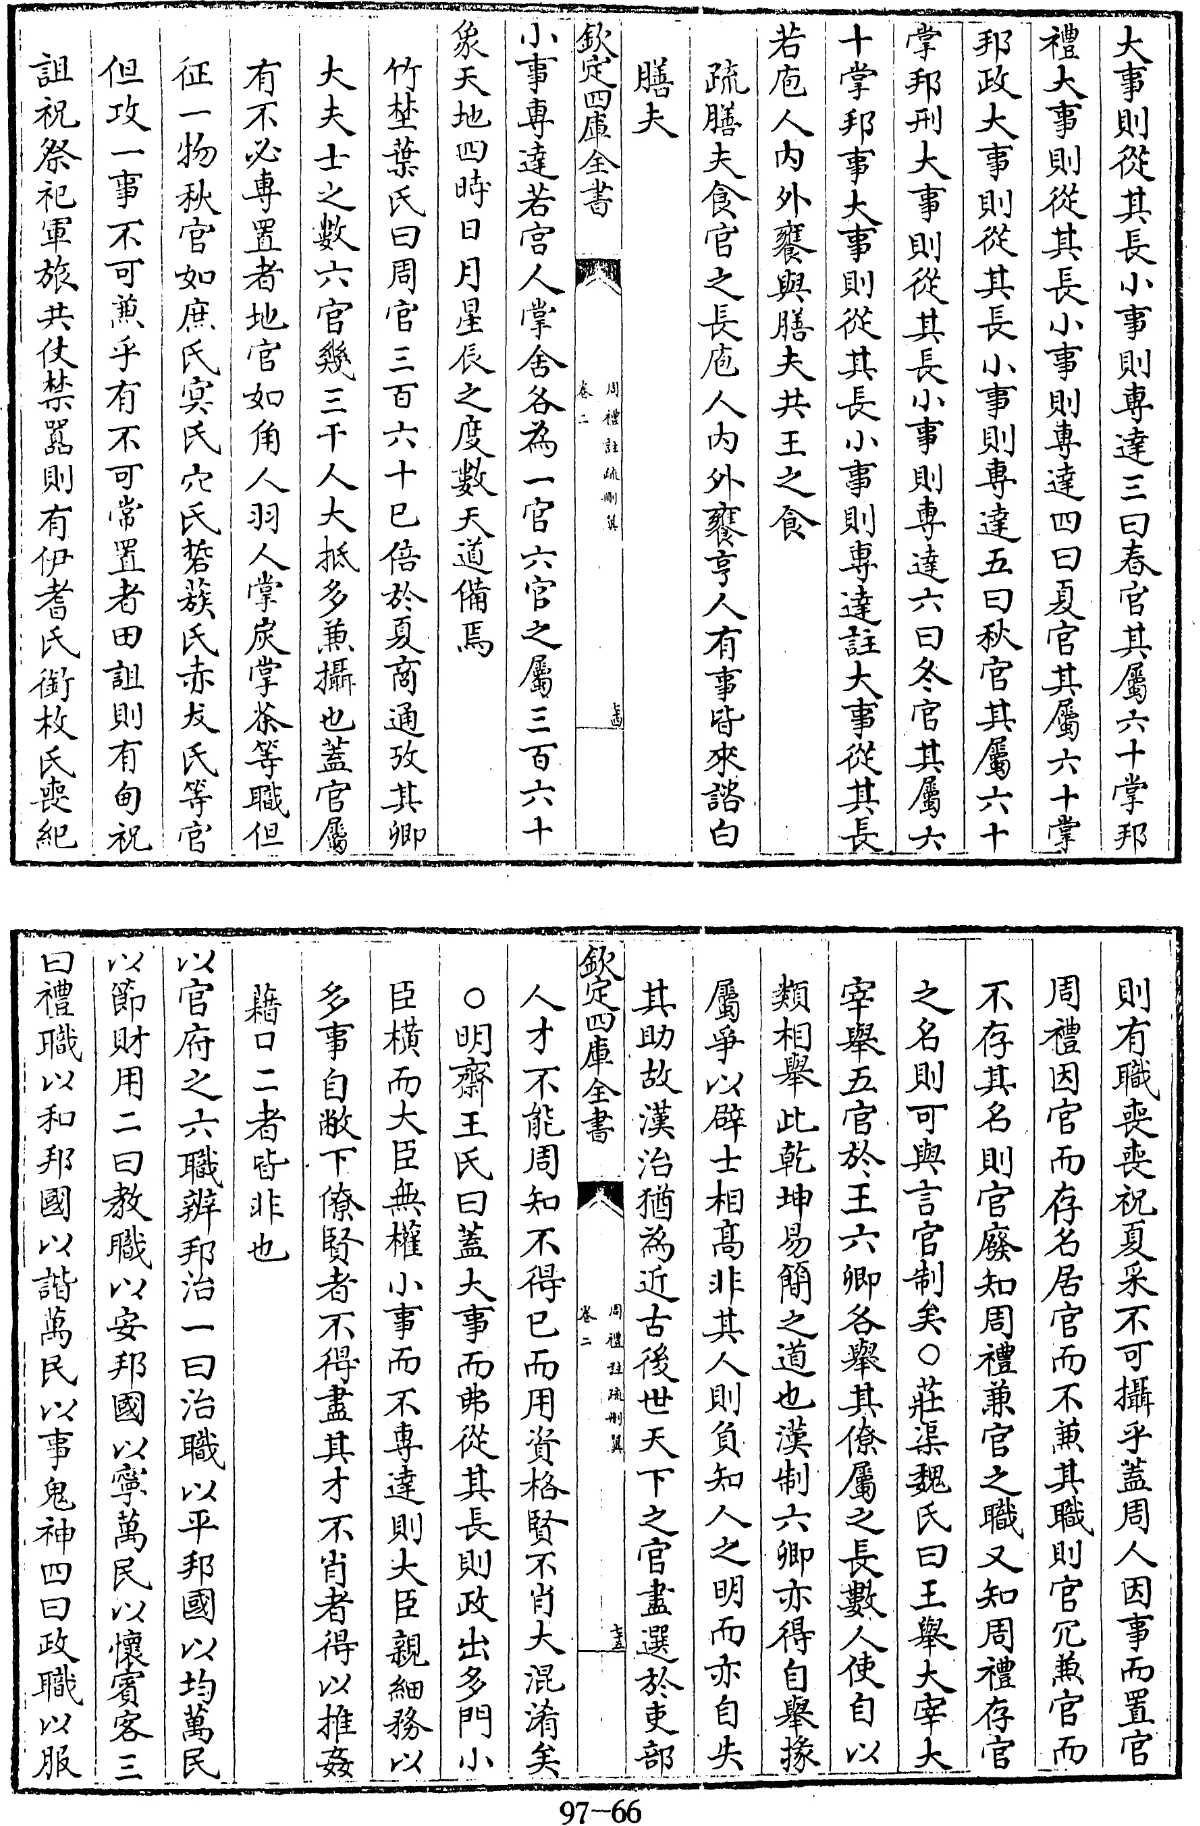 大事則從其長小事則専達三曰春官其屬六十掌邦
禮大事則從其長小事則専達四曰夏官其屬六十掌
邦政大事則從其長小事則専達五曰秋官其屬六十
掌邦刑大事則從其長小事則専達六曰冬官其屬六
十掌邦事大事則從其長小事則専達註大事從其長
若庖人内外饔與膳夫共王之食
疏膳夫食官之長庖人内外饔亨人有事皆來諮白
膳夫
欽定四庫全書
周禮註疏刪翼
卷二
小事専達若宫人掌舍各為一官六官之屬三百六十
象天地四時日月星辰之度數天道備焉
竹埜葉氏曰周官三百六十已倍於夏商通攷其卿
大夫士之數六官幾三千人大抵多兼攝也蓋官屬
有不必専置者地官如角人羽人掌炭掌荼等職但
征一物秋官如庶氏㝠氏穴氏硩蔟氏赤犮氏等官
但攻一事不可兼乎有不可常置者田詛則有甸祝
詛祝祭祀軍旅共仗禁嚚則有伊耆氏銜枚氏喪紀
則有職喪喪祝夏采不可攝乎蓋周人因事而置官
周禮因官而存名居官而不兼其職則官冗兼官而
不存其名則官廢知周禮兼官之職又知周禮存官
之名則可與言官制矣○莊渠魏氏曰王舉大宰大
宰舉五官於王六卿各舉其僚屬之長數人使自以
類相舉此乾坤易簡之道也漢制六卿亦得自舉掾
屬爭以辟士相高非其人則負知人之明而亦自失
其助故漢治猶為近古後世天下之官盡選於吏部
欽定四庫全書
周禮註疏刪翼
卷二
人才不能周知不得已而用資格賢不肖大混淆矣
○明齋王氏曰蓋大事而弗從其長則政出多門小
臣橫而大臣無權小事而不専達則大臣親細務以
多事自敝下僚賢者不得盡其才不肖者得以推姦
藉口二者皆非也
以官府之六職辨邦治一曰治職以平邦國以均萬民
以節財用二曰教職以安邦國以寧萬民以懷賓客三
曰禮職以和邦國以諧萬民以事鬼神四曰政職以服
97-66